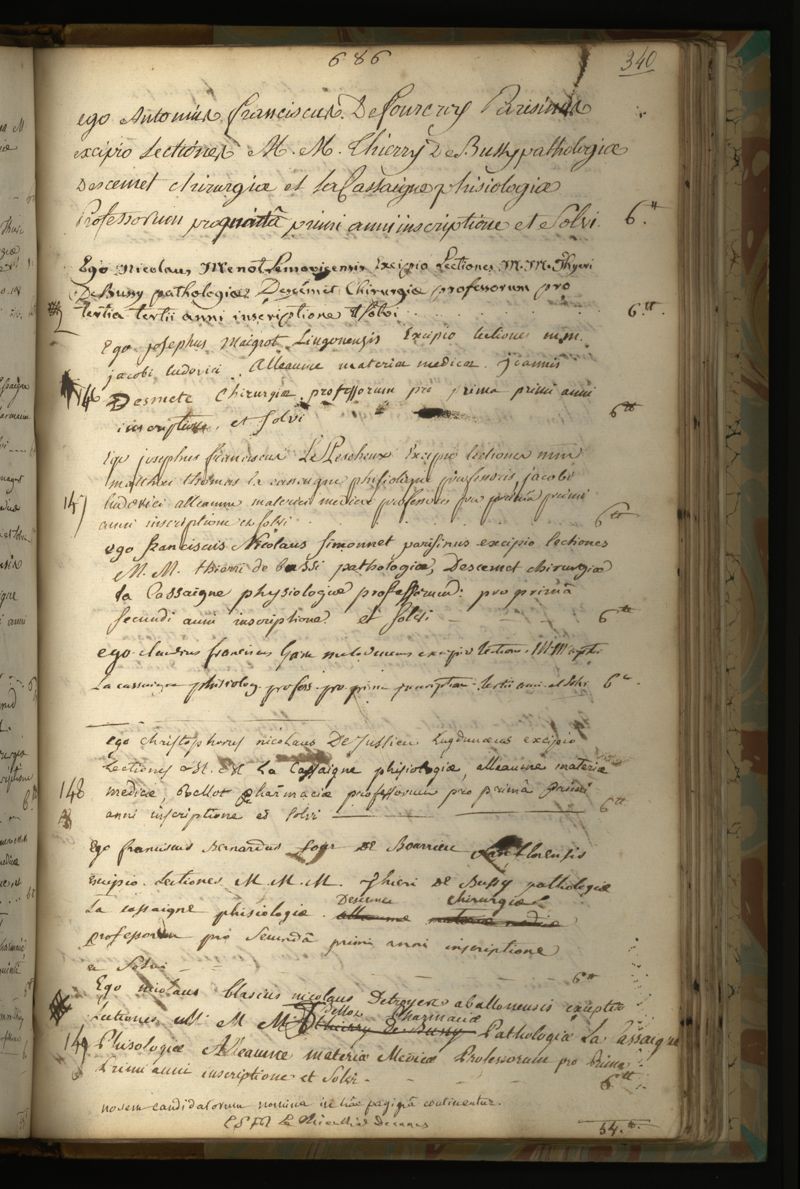 686
340
ego Antonius franciscus Defourcroy Parisinus
excipio Lectiones M. M. Thierry De Bussy pathologiæ
Descemet chirurgiæ et La Cassaigne phisiologiæ
Professorum pro quinta primi anni inscriptione et Solvi 6.tt
Ego Nicolaus Menot Lemovicensis Excipio Lectiones M. M. Thyeri
De Bussy pathologiæ Descemet Chirurgiæ professorum pro
tertia tertii anni inscriptione & solvi 6.tt
Ego josephus Maigrot Lingonensis Excipio lectiones mm.
jacobi ludovici Alleaume materiæ medicæ joannis
146 Desmets Chirurgiæ professorum pro prima primi anni
inscriptione, et solvi 6tt
Ego josephus franciscus Le Pescheux Excipio lectiones mm
mathæi thomas la cassaigne phisiologiæ professoris jacobi
147 ludovici alleaume materiei medicæ professoris pro primâ primi
anni inscriptione et solvi 6tt
ego franciscus Nicolaus simonnet parisinus excipio lectiones
M. M. thierri de bussi pathologiæ, Descemet chirurgiæ
la Cassaigne physiologiæ professorum: pro primâ
secundi anni inscriptione et solvi 6tt
ego claudius franciscus excipio lection. MM
La cassaigne phisiolog. profess. pro prima inscriptione tertii anni et solvi 6
ego christophorus nicolaus De Jussieu Lugdunæus excipio
Lectiones M. M. La Cassaigne phisiologiæ, alleaume materiæ
148 medicæ, Bellot pharmaciæ professorum pro primâ primi
anni inscriptione et solvi 6tt
Ego franciscus Bernardus four de Bourrieu sanflorensis
excipio Lectiones M. M. M. Thieri de Bussy pathologiæ
La cassaigne phisiologiæ. Descemet chirurgiæ alleaume materiæ medicæ
professorum pro secundâ primi anni inscriptione
et solvi 6tt
Ego nicolaus blasius nicolaus Detroyere aballonensis
Lectiones M M Bellot Pharmaciæ Thierry De Bussy Pathologiæ La Cassaigne
149 Phisologiæ Alleaume materiæ Medicæ Professorum pro Prima
Primi anni inscriptione et solvi 6tt
novem candidatorum nomina in hâc paginâ continentur.
Decanus
54.tt